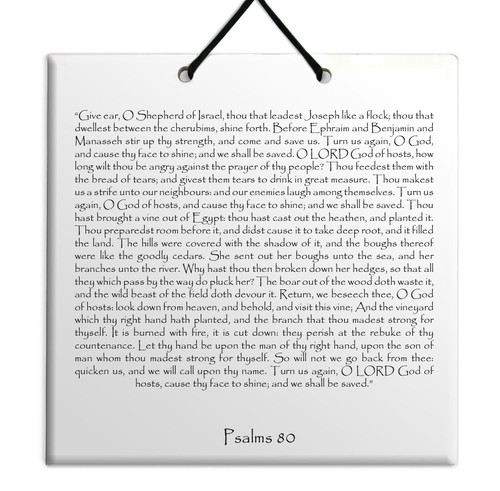 “Give ear, O Shepherd of Israel, thou that leadest Joseph like a flock; thou that
dwellest between the cherubims, shine forth. Before Ephraim and Benjamin and
Manasseh stir up thy strength, and come and save us. Turn us again, O God,
and cause thy face to shine; and we shall be saved. O LORD God of hosts, how
long wilt thou be angry against the prayer of thy people? Thou feedest them with
the bread of tears; and givest them tears to drink in great measure. Thou makest
us a strife unto our neighbours: and our enemies laugh among themselves. Turn us
again, O God of hosts, and cause thy face to shine; and we shall be saved. Thou
hast brought a vine out of Egypt: thou hast cast out the heathen, and planted it.
Thou preparedst room before it, and didst cause it to take deep root, and it filled
the land. The hills were covered with the shadow of it, and the boughs thereof
were like the goodly cedars. She sent out her boughs unto the sea, and her
branches unto the river. Why hast thou then broken down her hedges, so that all
they which pass by the way do pluck her? The boar out of the wood doth waste it,
and the wild beast of the field doth devour it. Return, we beseech thee, O God
of hosts: look down from heaven, and behold, and visit this vine; And the vineyard
which thy right hand hath planted, and the branch that thou madest strong for
thyself. It is burned with fire, it is cut down: they perish at the rebuke of thy
countenance. Let thy hand be upon the man of thy right hand, upon the son of
man whom thou madest strong for thyself. So will not we go back from thee:
quicken us, and we will call upon thy name. Turn us again, O LORD God of
hosts, cause thy face to shine; and we shall be saved.”
Psalms 80